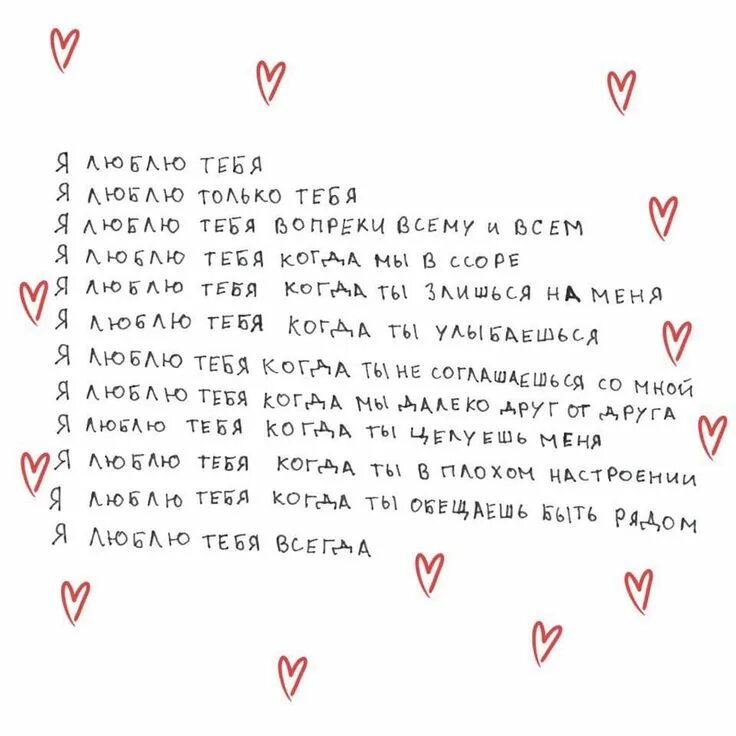 Я ЛЮБЛЮ ТЕБЯ
Я ЛЮБЛЮ ТОЛЬКО ТЕБЯ
Я ЛЮБЛЮ ТЕБЯ ВОПРЕКИ ВСЕМУ И ВСЕМ
Я ЛЮБЛЮ ТЕБЯ КОГДА МЫ В ССОРЕ
Я ЛЮБЛЮ ТЕБЯ КОГДА ТЫ ЗЛИШЬСЯ НА МЕНЯ
Я ЛЮБЛЮ ТЕБЯ КОГДА ТЫ УЛЫБАЕШЬСЯ
Я ЛЮБЛЮ ТЕБЯ КОГДА ТЫ НЕ СОГЛАШАЕШЬСЯ СО МНОЙ
Я ЛЮБЛЮ ТЕБЯ КОГДА МЫ ДАЛЕКО ДРУГ ОТ ДРУГА
Я ЛЮБЛЮ ТЕБЯ КОГДА ТЫ ЦЕЛУЕШЬ МЕНЯ
Я ЛЮБЛЮ ТЕБЯ КОГДА ТЫ В ПЛОХОМ НАСТРОЕНИИ
Я ЛЮБЛЮ ТЕБЯ КОГДА ТЫ ОБЕЩАЕШЬ БЫТЬ РЯДОМ
Я ЛЮБЛЮ ТЕБЯ ВСЕГДА